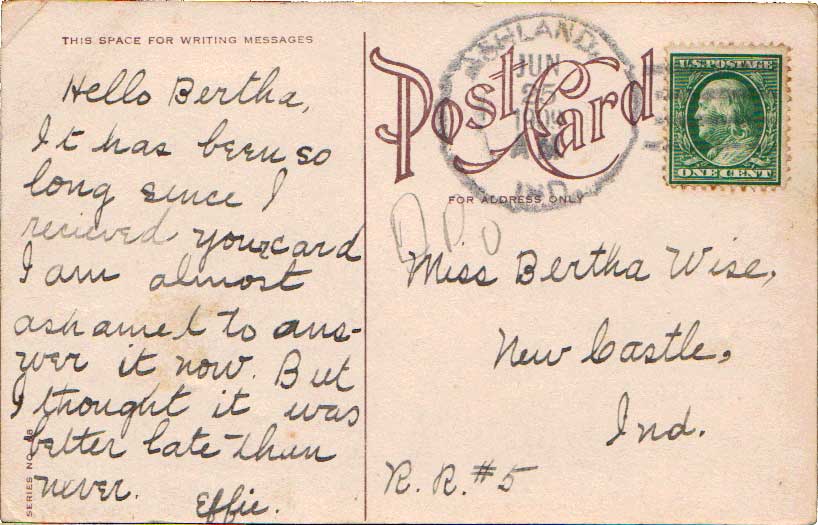 THIS SPACE FOR WRITING MESSAGES
Hello Bertha,
It has been so
long since I
recieved your card
I am almost
ashamed to ans-
wer it now. But
I thought it was
better late than
never.
Effie.
SERIES NO.
Post Card
FOR ADDRESS ONLY
ASHLAND,
JUN
25
A.M.
IND.
U.S. POSTAGE
ONE CENT
D P O
Miss Bertha Wise,
New Castle,
Ind.
R. R. #5